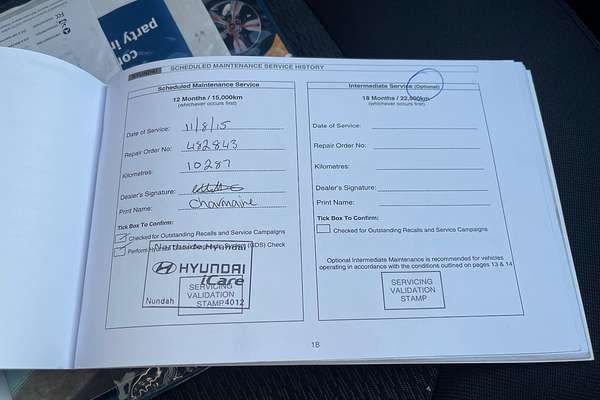 party in
HYUNDAI SCHEDULED MAINTENANCE SERVICE HISTORY
Scheduled Maintenance Service
12 Months / 15,000km
(whichever occurs first)
Date of Service: 11/8/15
Repair Order No: 482843
Kilometres: 10287
Dealer's Signature:
Print Name: Charmaine
Tick Box To Confirm:
Checked for Outstanding Recalls and Service Campaigns
Perform Hyundai (GDS) Check
Northside Hyundai
HYUNDAI
iCare
SERVICING
VALIDATION
STAMP
Nundah 4012
Intermediate Service (Optional)
18 Months / 22,000km
(whichever occurs first)
Date of Service:
Repair Order No:
Kilometres:
Dealer's Signature:
Print Name:
Tick Box To Confirm:
Checked for Outstanding Recalls and Service Campaigns
Optional Intermediate Maintenance is recommended for vehicles
operating in accordance with the conditions outlined on pages 13 & 14
SERVICING
VALIDATION
STAMP
18